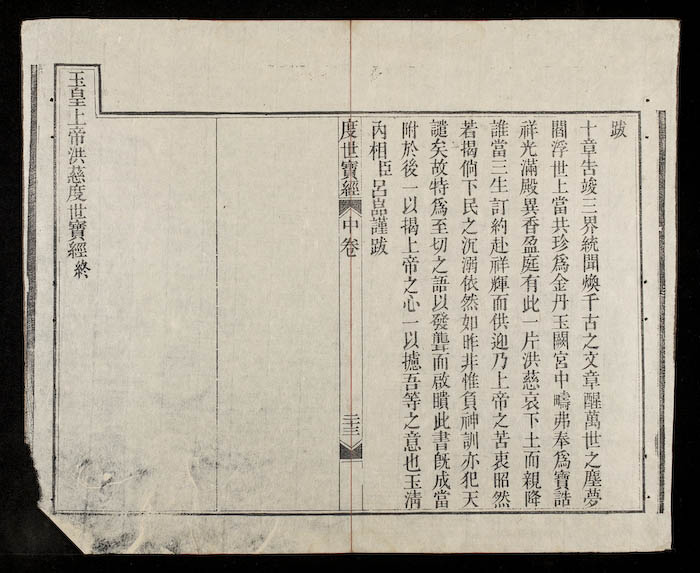 跋
十章吿竣三界統聞煥千古之文章醒萬世之塵夢
閻浮世上當共珍爲金丹玉闕宮中疇弗奉爲寶誥
祥光滿殿異香盈庭有此一片洪慈哀下土而親降
誰當三生訂約赴祥輝而供迎乃上帝之苦衷昭然
若揭倘下民之沉溺依然如昨非惟負神訓亦犯天
譴矣故特爲至切之語以發聾而啟瞶此書旣成當
附於後一以揭上帝之心一以攄吾等之意也玉淸
內相臣呂嵓謹跋
度世寶經 中卷 二十三
玉皇上帝洪慈度世寶經 終